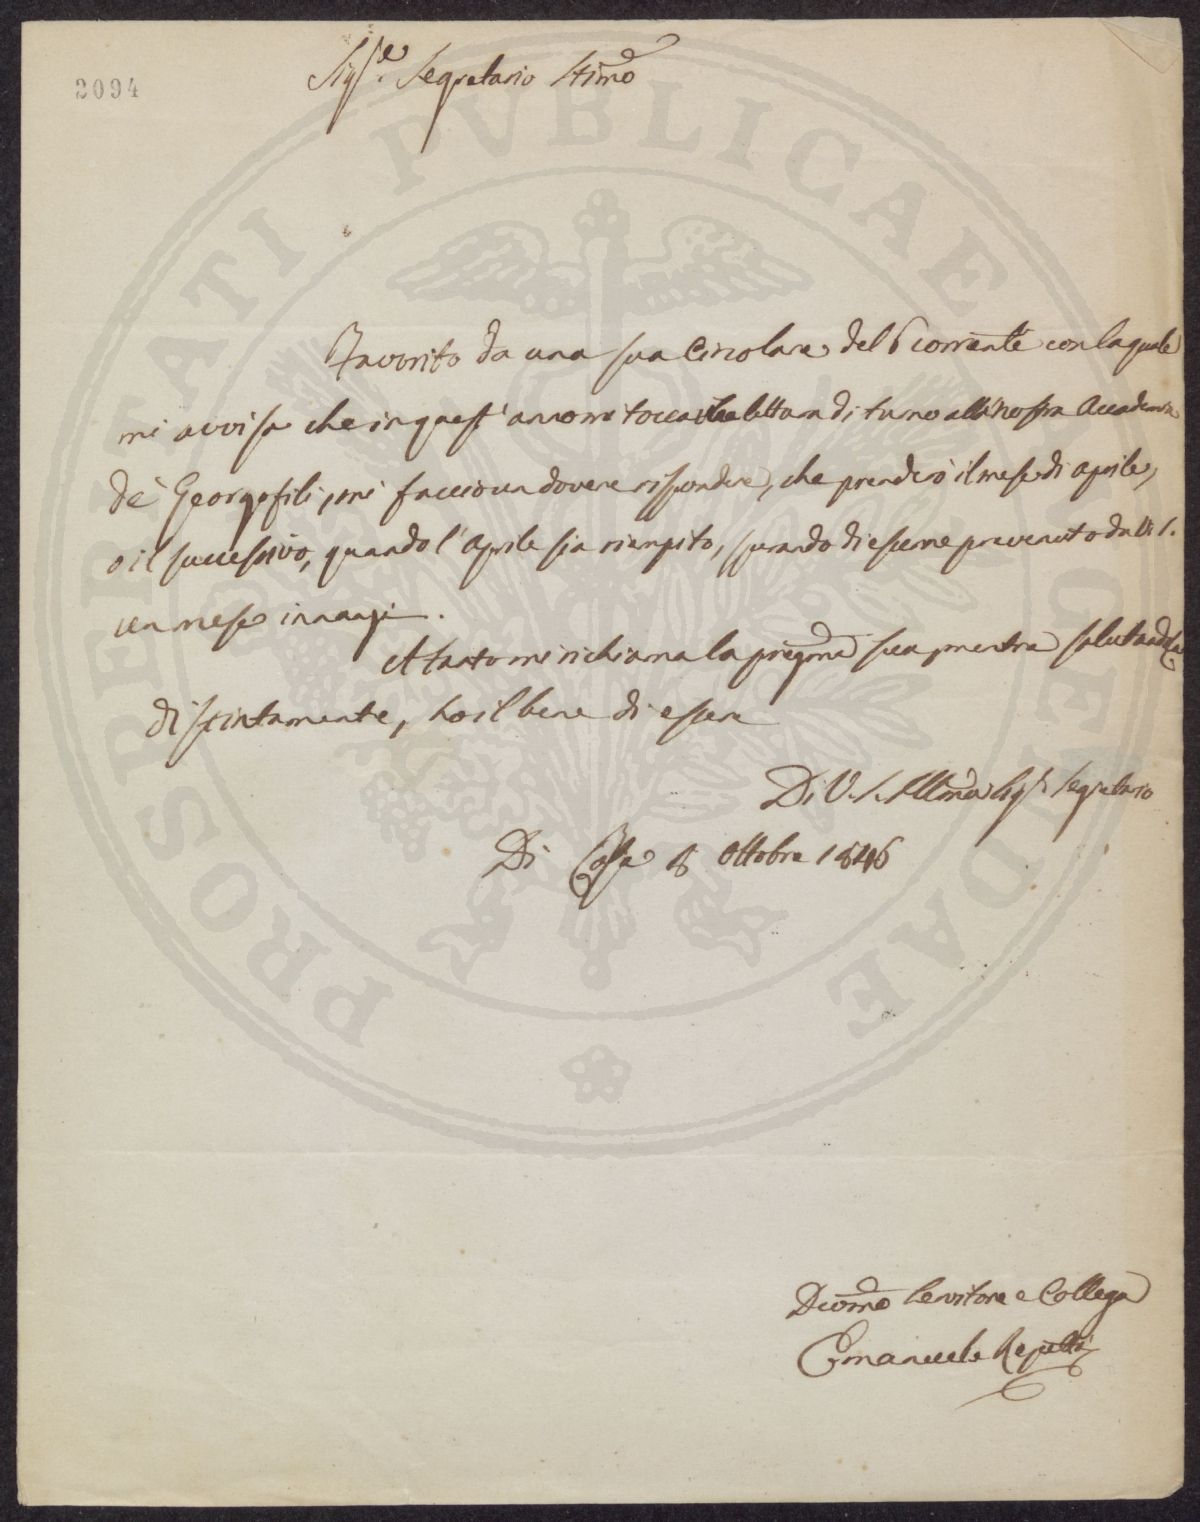 2094
Sigre. Segretario Stimo
Favorito da una sua Circolare del 6 corrente con la quale
mi avvisa che in quest'anno mi tocca la lettura di turno alla nostra Accademia
de' Georgofili, mi faccio un dovere rispondere, che prenderò il mese di aprile,
o il successivo, quando l'Aprile sia riempito, sperando di esserne prevenuto da V. S.
un mese innanzi.
A tanto mi richiama la pregma sua, mentre salutandola
distintamente, ho il bene di essere
Di V. S. Illma Sigr. Segretario
Di Casa 8 Ottobre 1846
Devmo Servitore e Collega
Emanuele Repetti
PROSPERITATI PVBLICAE AVGENDAE